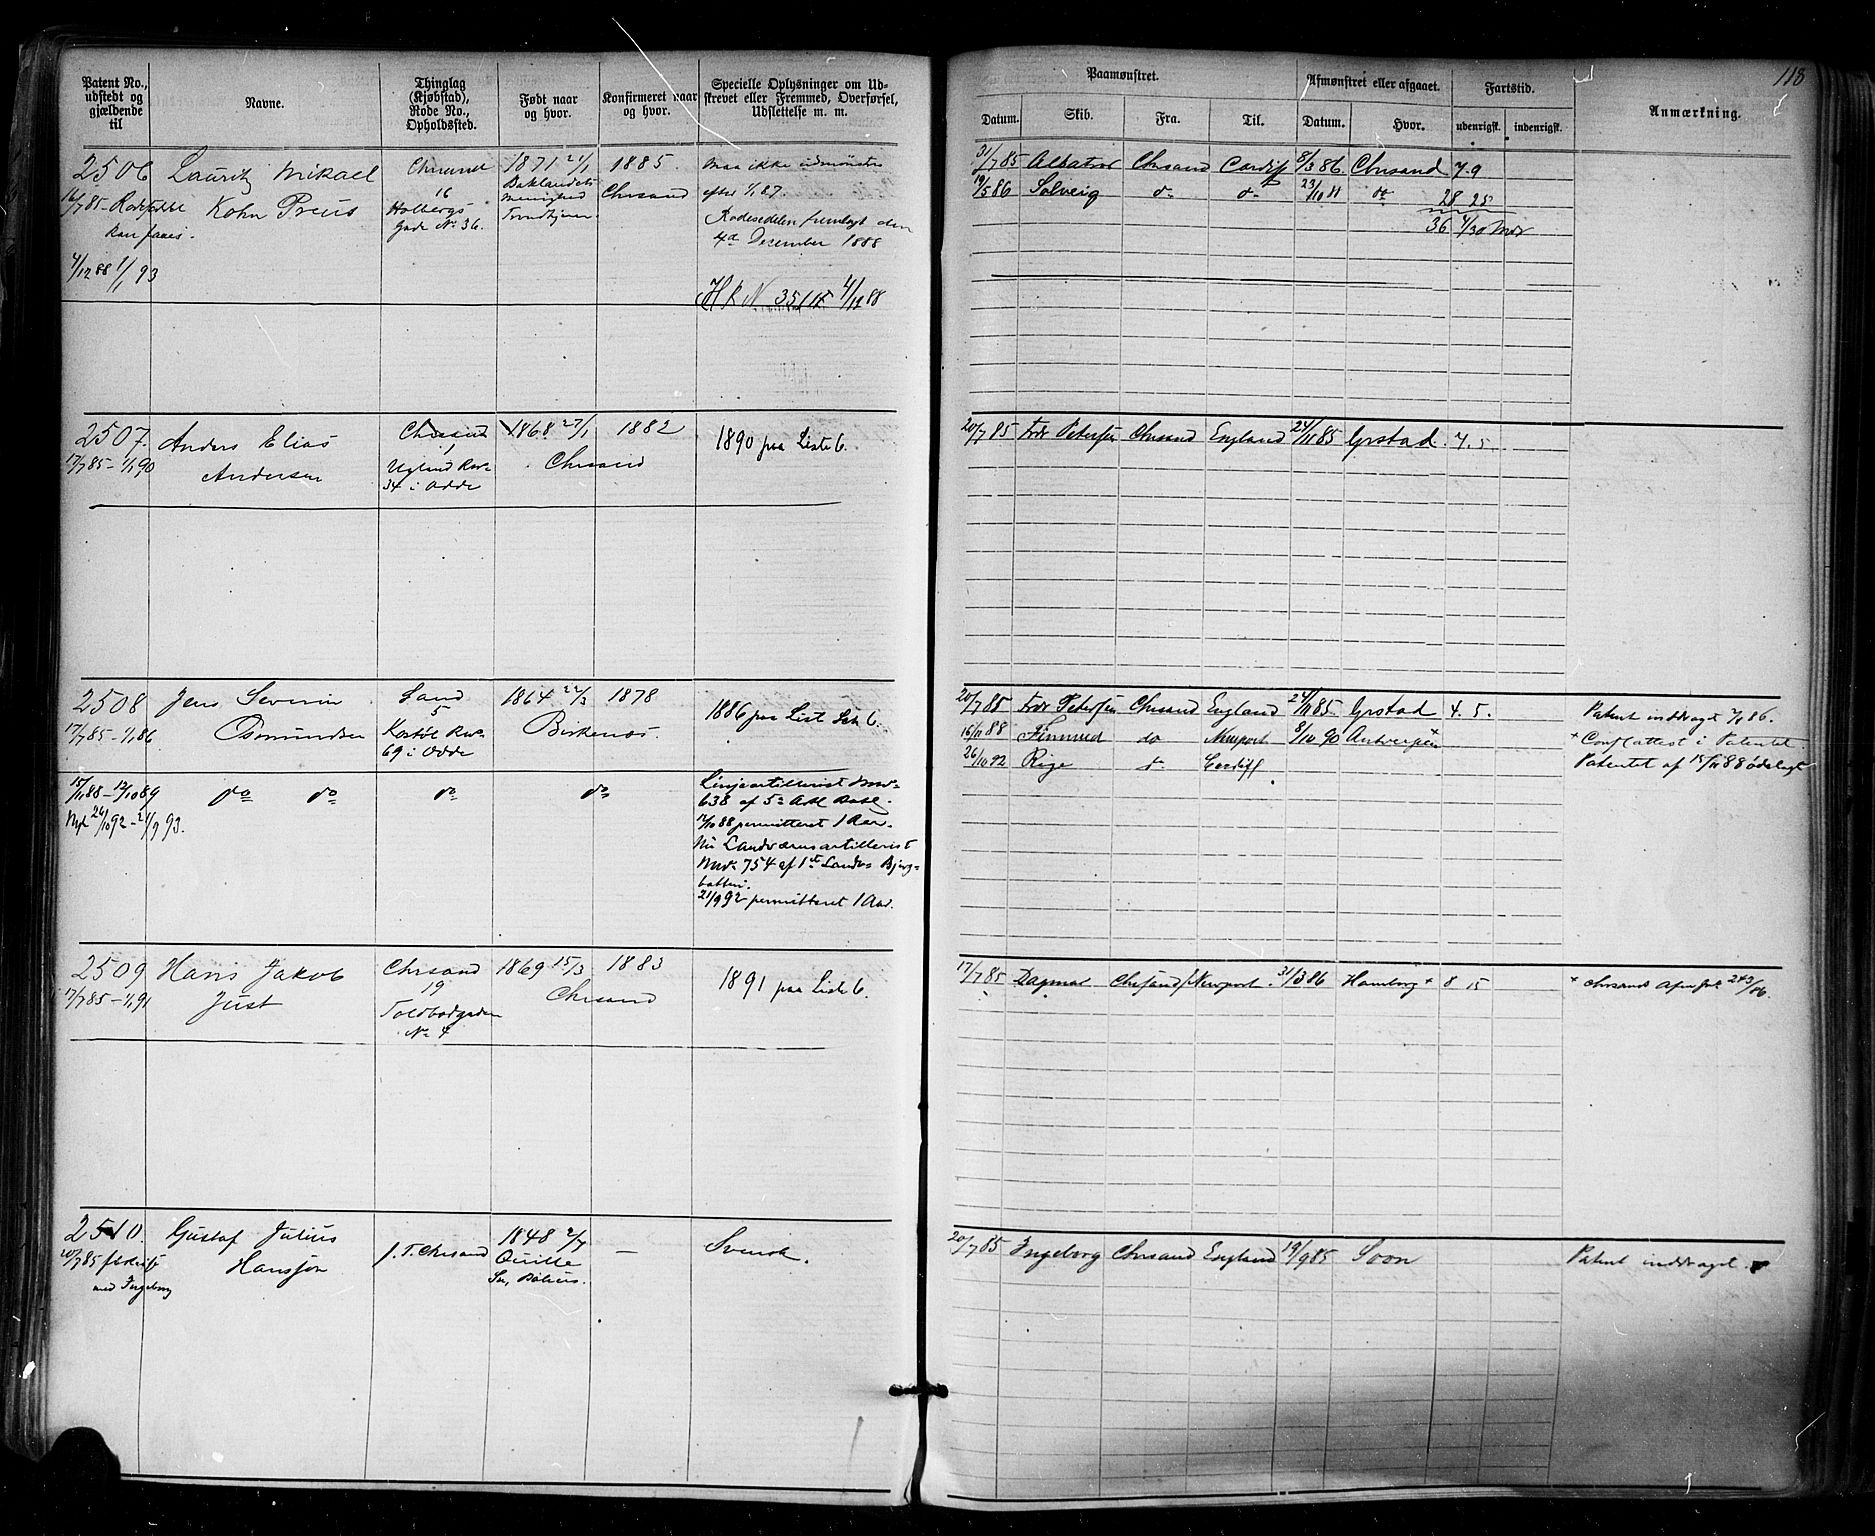 118
Patent No., udstedt og gjældende til
Navne.
Thinglag (Kjøbstad), Rode No., Opholdssted.
Født naar og hvor.
Konfirmeret naar og hvor.
Specielle Oplysninger om Udskrevet eller Fremmed, Overførsel, Udslettelse m. m.
Paamønstret.
Afmønstret eller afgaaet.
Fartstid.
Anmærkning.
Datum.
Skib.
Fra.
Til.
Datum.
Hvor.
udenrigsk.
indenrigsk.
2506 Lauritz Mikael
Kohn Preus
kan faaes.
4/12 88 1/1 93
16
Holbergs
Gade No 36.
1871 21/1
Baklandets
Menighed
Trondhjem
1885.
Chrsand
Maa ikke udmønstres
efter 1/1 87.
Rodesedelen fremlagt den
4de December 1888
31/7 85 Albatros Chrsand Cardiff 8/3 86 Chrsand 7.9
19/5 86 Solveig do do 23/10 88 do 28 25
36 4/30 Mdr
2507. Anders Elias
Andersen
17/7 85 - 1/1 90
Chrsand
1
34 i Odde
1868 27/1 1882
Chrsand
1890 paa Liste 6.
20/7 85 Fdr Petersen Chrsand England 24/11 85 Grstad. 4. 5.
2508 Jens Severin
Osmundsen
17/7 85 - 1/1 86
Sand
5
69 i Odde
1864 22/3 1878
Birkenæs.
20/7 85 Fdr Petersen Chrsand England 24/11 85 Grstad 4. 5.
Patent inddraget 7/1 86.
16/11 88 do Newport 8/10 90 Antwerpen +
+ Conf.attest i Patentet.
26/10 92 Rige do Cardiff.
Patentet af 15/11 88 ødelagt
15/11 88 - 12/10 89 do do do do
Nyt 26/10 92 - 21/9 93.
Linjeartillerist
12/10 88 permitteret 1 Aar.
Nu Landværnsartillerist
batteri.
21/9 92 permitteret 1 Aar.
2509 Hans Jakob
Just
17/7 85 - 1/1 91
Chrsand
19
Toldbodgaden
No 4
1869 15/3 1883
Chrsand
1891 paa Liste 6.
17/7 85 Dagmar Chrsand Newport. 31/3 86 Hamborg + 8 15
2510. Gustaf Julius
Hansson
20/7 85
med Ingeborg
J. T. Chrsand
1848 2/7
Quille
—
Svensk.
20/7 85 Ingeborg Chrsand England 19/9 85 Soon
Patent inddraget.